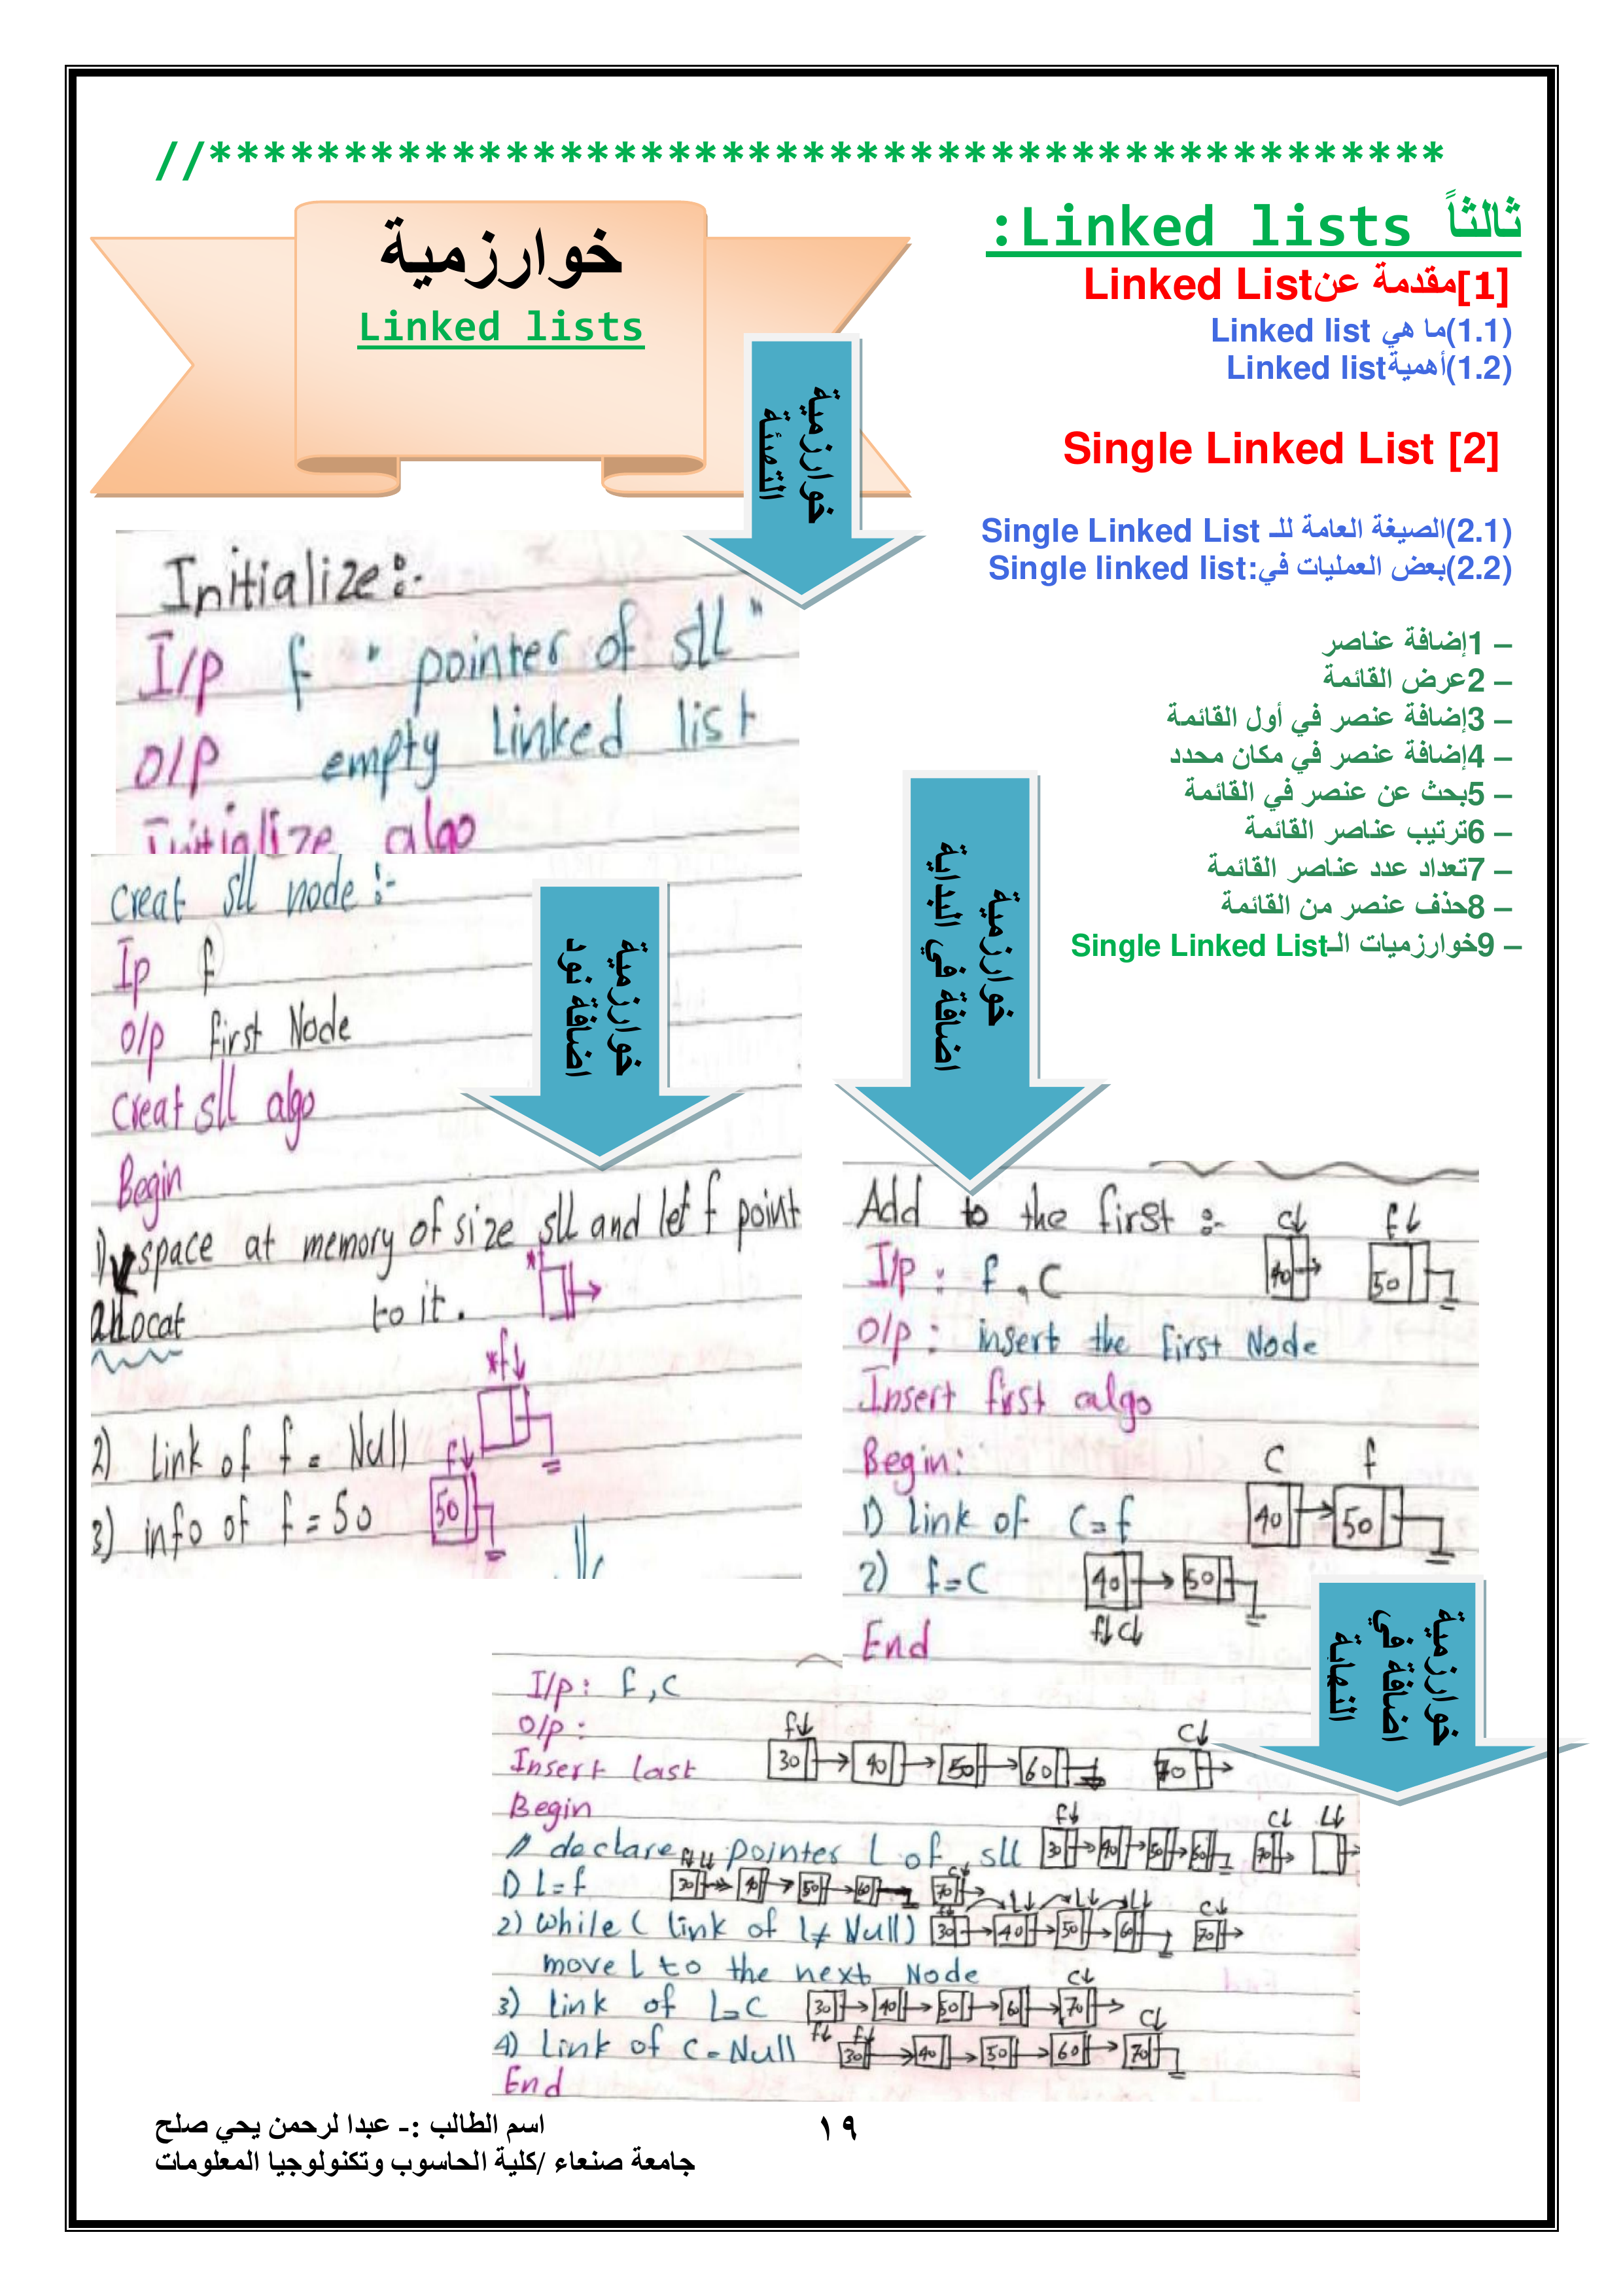 //**********************************************
ثالثاً Linked lists:
[1]مقدمة عنLinked List
(1.1)ما هي Linked list
(1.2)أهميةLinked list
[2] Single Linked List
(2.1)الصيغة العامة للـ Single Linked List
(2.2)بعض العمليات في:Single linked list
– 1إضافة عناصر
– 2عرض القائمة
– 3إضافة عنصر في أول القائمة
– 4إضافة عنصر في مكان محدد
– 5بحث عن عنصر في القائمة
– 6ترتيب عناصر القائمة
– 7تعداد عدد عناصر القائمة
– 8حذف عنصر من القائمة
– 9خوارزميات الـSingle Linked List
خوارزمية
Linked lists
خوارزمية
التهيئة
Initialize:-
I/p f " pointer of sll "
O/p empty linked list
Initialize algo
خوارزمية
اضافة نود
creat sll node :-
Ip f
O/p first Node
creat sll algo
Begin
1) space at memory of size sll and let f point
allocat to it.
*f
*f
2) link of f = Null
f
3) info of f = 50
50
خوارزمية
اضافة في البداية
Add to the first :-
c f
40 50
I/p : f , C
O/p : insert the first Node
Insert first algo
Begin:
C f
1) link of C=f
40 50
2) f=C
40 50
f C
End
خوارزمية
اضافة في
النهاية
I/p: f,c
O/p :
f c
Insert last
30 40 50 60 70
Begin
f c L
// declare pointer L of sll
30 40 50 60 70
1) L=f
30 40 50 60 70
2) while ( link of L≠ Null)
30 40 50 60 70
move L to the next Node
3) link of L=C
30 40 50 60 70
4) Link of C=Null
30 40 50 60 70
End
اسم الطالب :- عبدا لرحمن يحي صلح
جامعة صنعاء /كلية الحاسوب وتكنولوجيا المعلومات
١٩